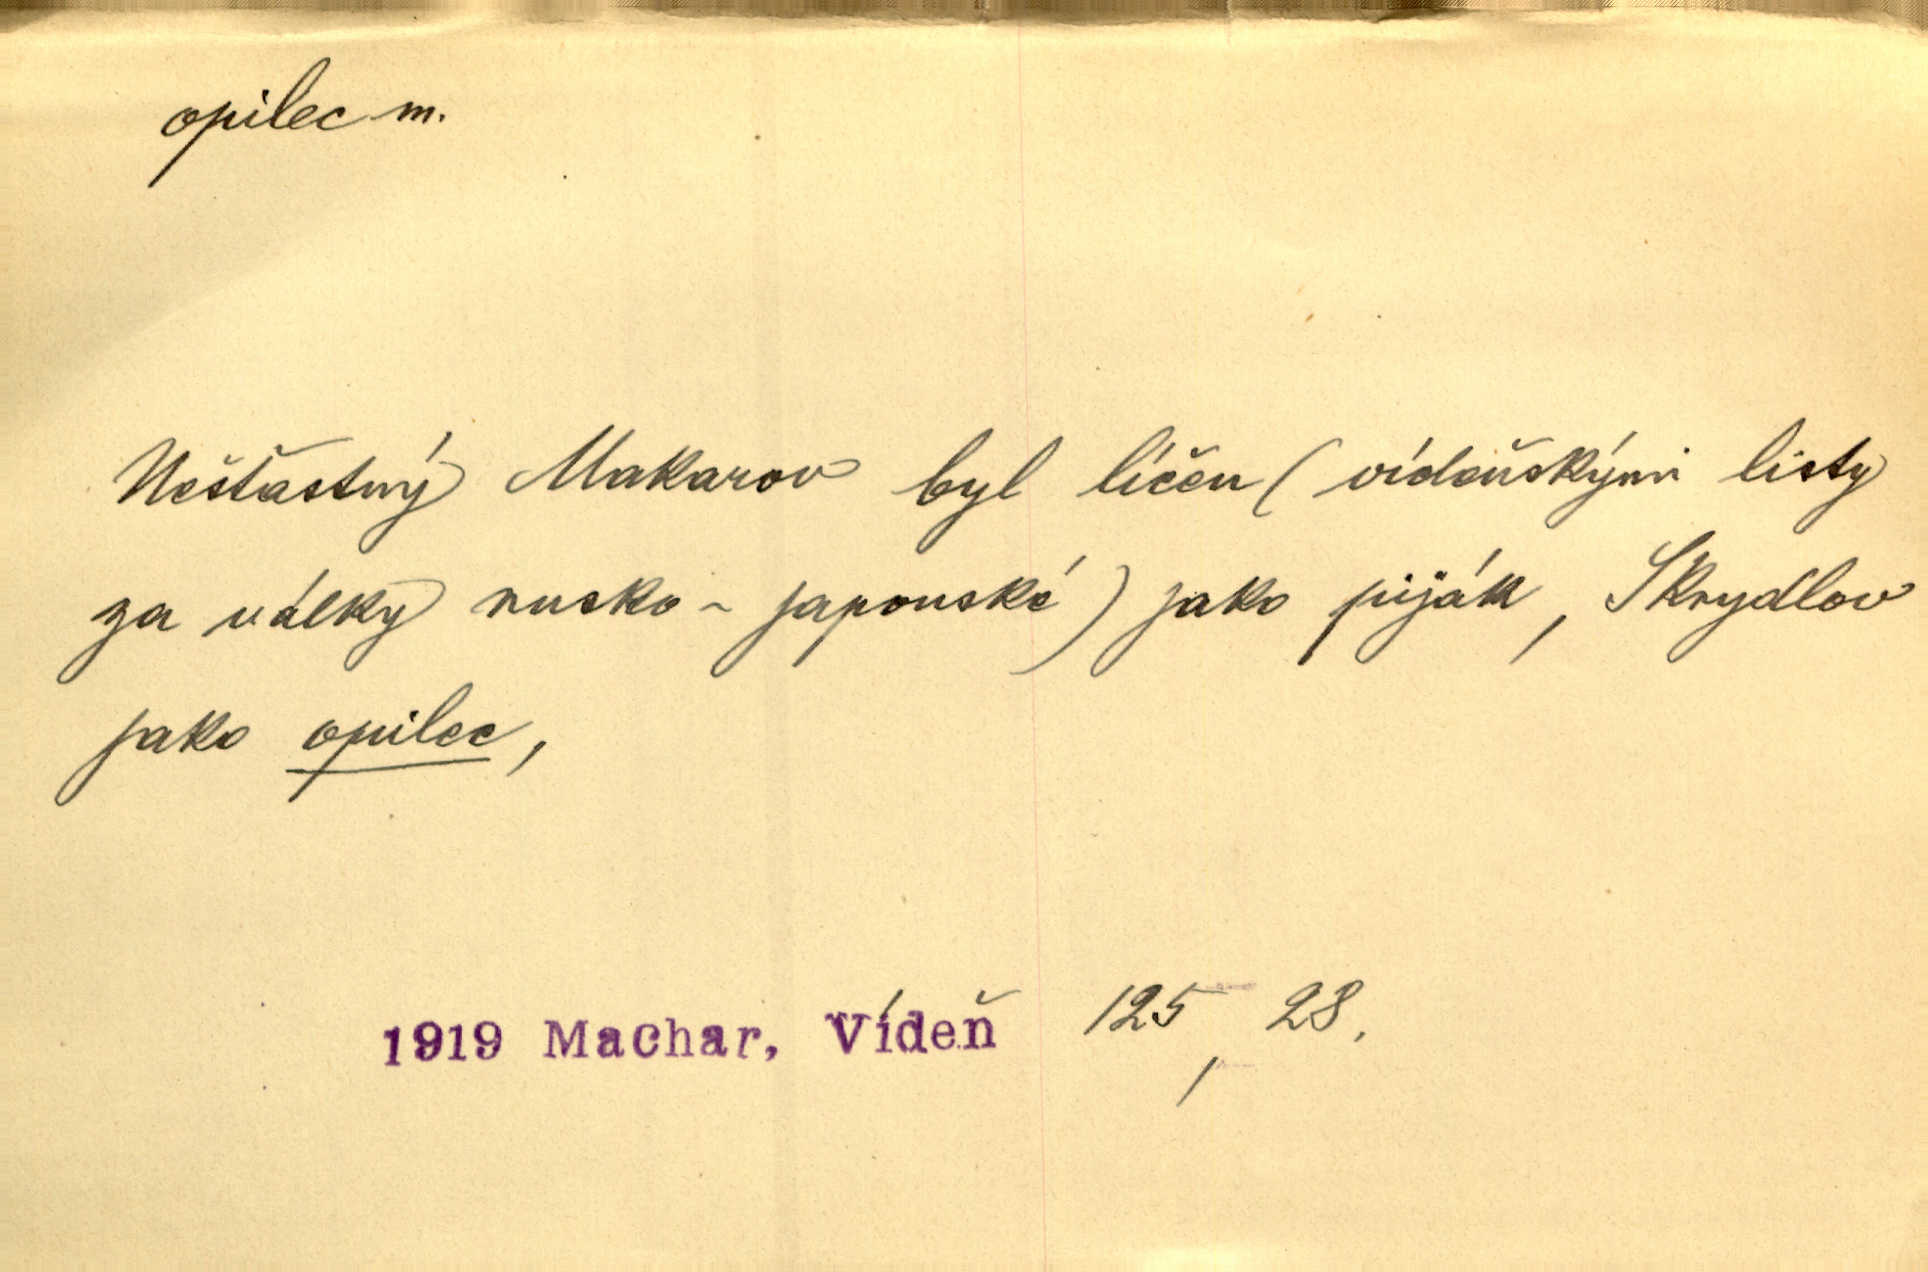 opilec m.
Nešťastný Makarov byl líčen (vídeňskými listy
za války rusko-japonské) jako piják, Skrydlov
jako opilec,
1919 Machar, Vídeň 125, 28.